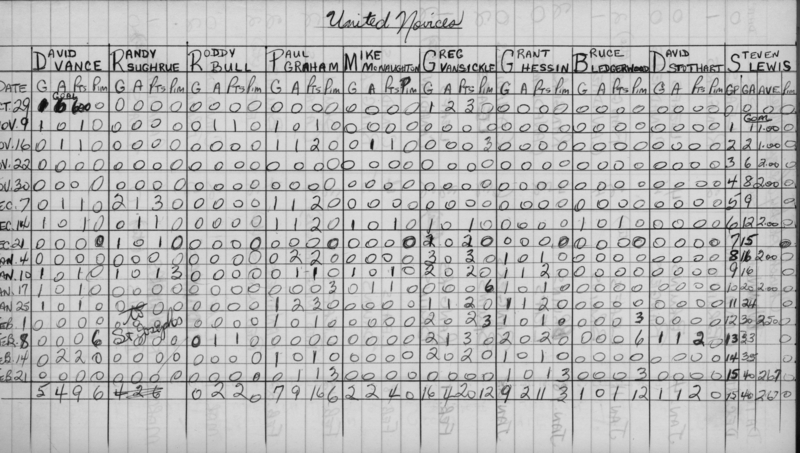 United Novices
DAVID VANCE RANDY SUGHRUE RODDY BULL PAUL GRAHAM MIKE McNAUGHTON GREG VANSICKLE GRANT HESSIN BRUCE LEDGERWOOD DAVID STOTHART STEVEN LEWIS
DATE G A Pts Pim G A Pts Pim G A Pts Pim G A Pts Pim G A Pts Pim G A Pts Pim G A Pts Pim G A Pts Pim G A Pts Pim GP GA AVE Pim
CT. 29 GOAL 0 0 0 0 0 0 0 0 0 0 0 0 0 0 0 0 1 2 3 0 0 0 0 0 0 0 0 0 0 0 0 0 0 0 0 0
OV. 9 1 0 1 0 0 0 0 0 0 1 1 0 1 0 1 0 0 0 0 0 0 0 0 0 0 0 0 0 0 0 0 0 0 0 0 0 1 GOAL 1 1.00 0
OV. 16 0 1 1 0 0 0 0 0 0 0 0 0 1 1 2 0 0 1 1 0 0 0 0 3 0 0 0 0 0 0 0 0 0 0 0 0 2 2 1.00 0
OV. 22 0 0 0 0 0 0 0 0 0 0 0 0 0 0 0 0 0 0 0 0 0 0 0 0 0 0 0 0 0 0 0 0 0 0 0 0 3 6 2.00 0
OV. 30 0 0 0 0 0 0 0 0 0 0 0 0 0 0 0 0 0 0 0 0 0 0 0 0 0 0 0 0 0 0 0 0 0 0 0 0 4 8 2.00 0
EC. 7 0 1 1 0 2 1 3 0 0 0 0 0 1 1 2 0 0 0 0 0 0 0 0 0 0 0 0 0 0 0 0 0 0 0 0 0 5 9 0
EC. 14 1 0 1 0 0 1 1 0 0 0 0 0 1 1 2 0 1 0 1 0 1 0 1 0 0 0 0 0 1 0 1 0 0 0 0 0 6 12 2.00 0
EC. 21 0 0 0 0 1 0 1 0 0 0 0 0 0 0 0 0 0 0 0 0 2 0 2 0 0 0 0 0 0 0 0 0 0 0 0 0 7 15 0
AN. 4 0 0 0 0 0 0 0 0 0 0 0 0 0 2 2 0 0 0 0 0 3 0 3 0 1 0 1 0 0 0 0 0 0 0 0 0 8 16 2.00 0
AN. 10 1 0 1 0 1 0 1 3 0 0 0 0 0 1 1 0 1 0 1 0 2 0 2 0 1 1 2 0 0 0 0 0 0 0 0 0 9 16 0
AN. 17 1 0 1 0 0 0 0 0 0 0 0 0 0 0 0 3 0 1 1 0 0 0 0 6 1 0 1 0 0 0 0 0 0 0 0 0 10 20 2.00 0
AN. 25 1 0 1 0 to 0 0 0 0 1 2 3 0 0 0 0 0 1 1 2 0 1 1 2 0 0 0 0 0 0 0 0 0 11 24 0
EB. 1 0 0 0 0 St. Josephs 0 0 0 0 1 0 1 0 0 0 0 0 2 0 2 3 1 0 1 0 0 0 0 3 0 0 0 0 12 30 2.50 0
EB. 8 0 0 0 6 0 1 1 0 0 0 0 0 0 0 0 0 2 1 3 0 2 0 2 0 0 0 0 6 1 1 2 0 13 33 0
EB. 14 0 2 2 0 0 0 0 0 1 0 1 0 0 0 0 0 2 0 2 0 1 0 1 0 0 0 0 0 0 0 0 0 14 35 0
EB. 21 0 0 0 0 0 0 0 0 0 1 1 3 0 0 0 0 0 0 0 0 1 0 1 3 0 0 0 3 0 0 0 0 15 40 2.67 0
5 4 9 6 4 2 6 0 2 2 0 7 9 16 6 2 2 4 0 16 4 20 12 9 2 11 3 1 0 1 12 1 1 2 0 15 40 2.67 0